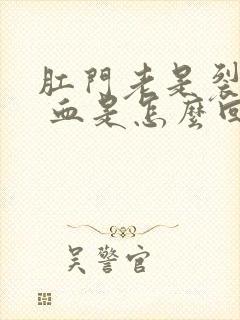 肛門老是裂
血是怎麼回
吴警官